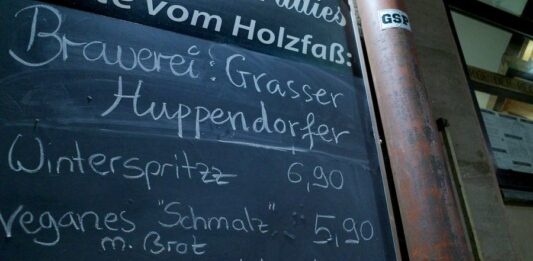 te vom Holzfaß:
GSP
Brauerei: Grasser
Huppendorfer
Winterspritzz 6,90
veganes "Schmalz" 5,90
m. Brot